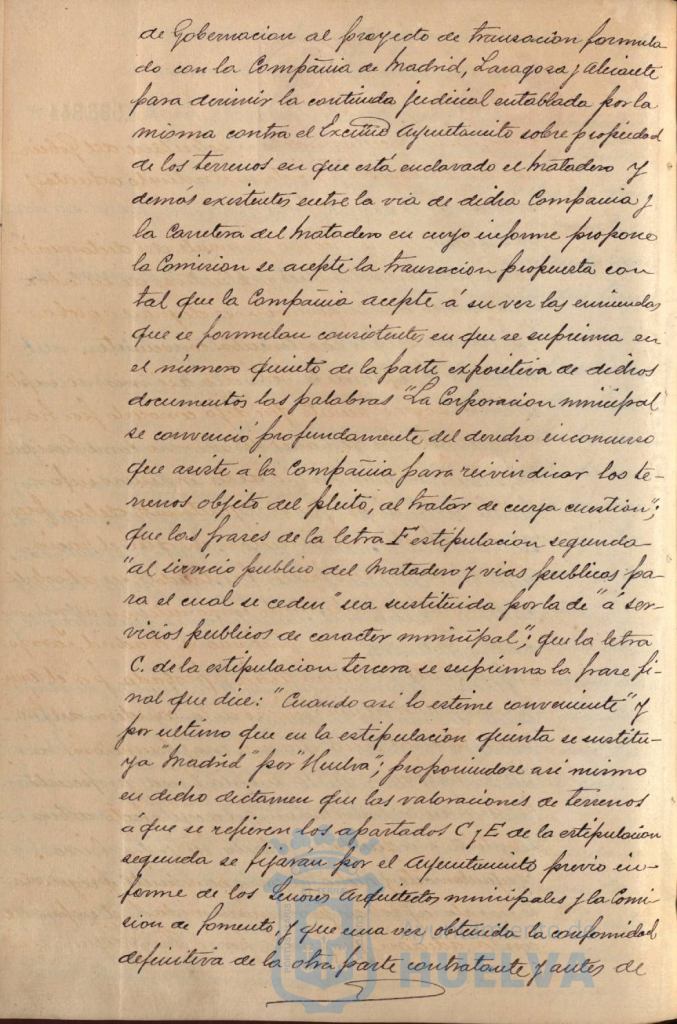 de Gobernacion al proyecto de transacion formula
do con la Compañia de Madrid, Zaragoza y Alicante
para dirimir la contienda judicial entablada por la
misma contra el Excmo Ayuntamiento sobre propiedad
de los terrenos en que está enclavado el Matadero y
demás existentes entre la via de dicha Compañia y
la Carretera del Matadero en cuyo informe propone
la Comision se acepte la transacion propuesta con
tal que la Compañia acepte á su vez las enmiendas
que se formulan consistentes en que se suprima en
el número quinto de la parte expositiva de dichos
documentos las palabras "La Corporacion municipal
se convenció profundamente del derecho inconcuso
que asiste á la Compañia para reivindicar los te-
rrenos objeto del pleito, al tratar de cuya cuestion";
que las frases de la letra F estipulacion segunda
"al servicio publico del Matadero y vias publicas pa
ra el cual se ceden" sea sustituida por la de "á ser-
vicios publicos de caracter municipal"; que la letra
C. de la estipulacion tercera se suprima la frase fi-
nal que dice: "Cuando asi lo estime conveniente" y
por ultimo que en la estipulacion quinta se sustitu-
ya "Madrid" por "Huelva"; proponiendose asi mismo
en dicho dictamen que las valoraciones de terrenos
á que se refieren los apartados C y E de la estipulacion
segunda se fijarán por el Ayuntamiento previo in-
forme de los Señores Arquitectos municipales y la Comi
sion de Fomento, y que una vez obtenida la conformidad
definitiva de la otra parte contratante y antes de
Ayuntamiento de
HUELVA